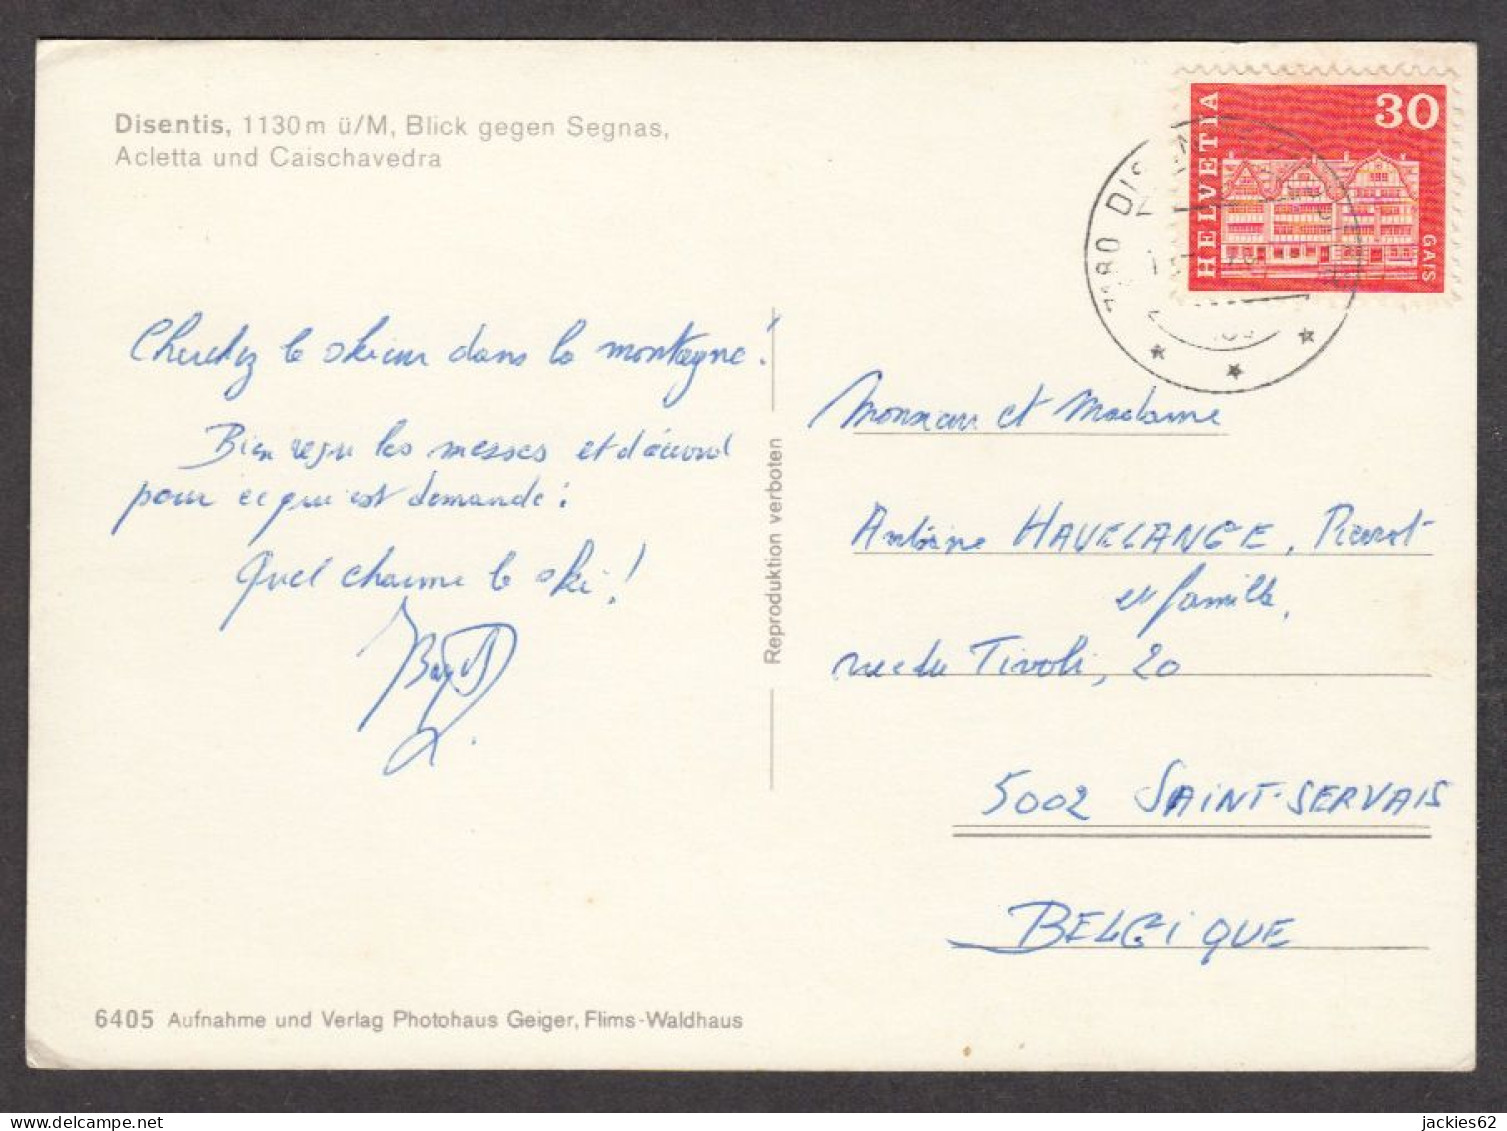 Disentis, 1130 m ü/M, Blick gegen Segnas,
Acletta und Caischavedra
HELVETIA
30
GAIS
7180 DIS
Cherchez le skieur dans la montagne!
Bien reçu les messes et d'accord
pour ce qui est demandé!
Quel charme le ski!
Reproduktion verboten
Monsieur et Madame
Antoine HAVELANGE, Pierrot
et famille,
rue de Tivoli, 20
5002 SAINT-SERVAIS
BELGIQUE
6405 Aufnahme und Verlag Photohaus Geiger, Flims-Waldhaus
jackies62